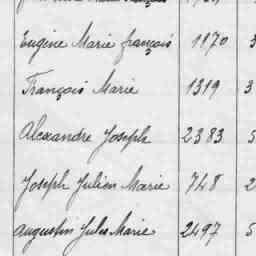 Eugène Marie françois 1870 3
François Marie 1319 3
Alexandre Joseph 2383 5
Joseph Julien Marie 748 2
Augustin Jules Marie 2497 5